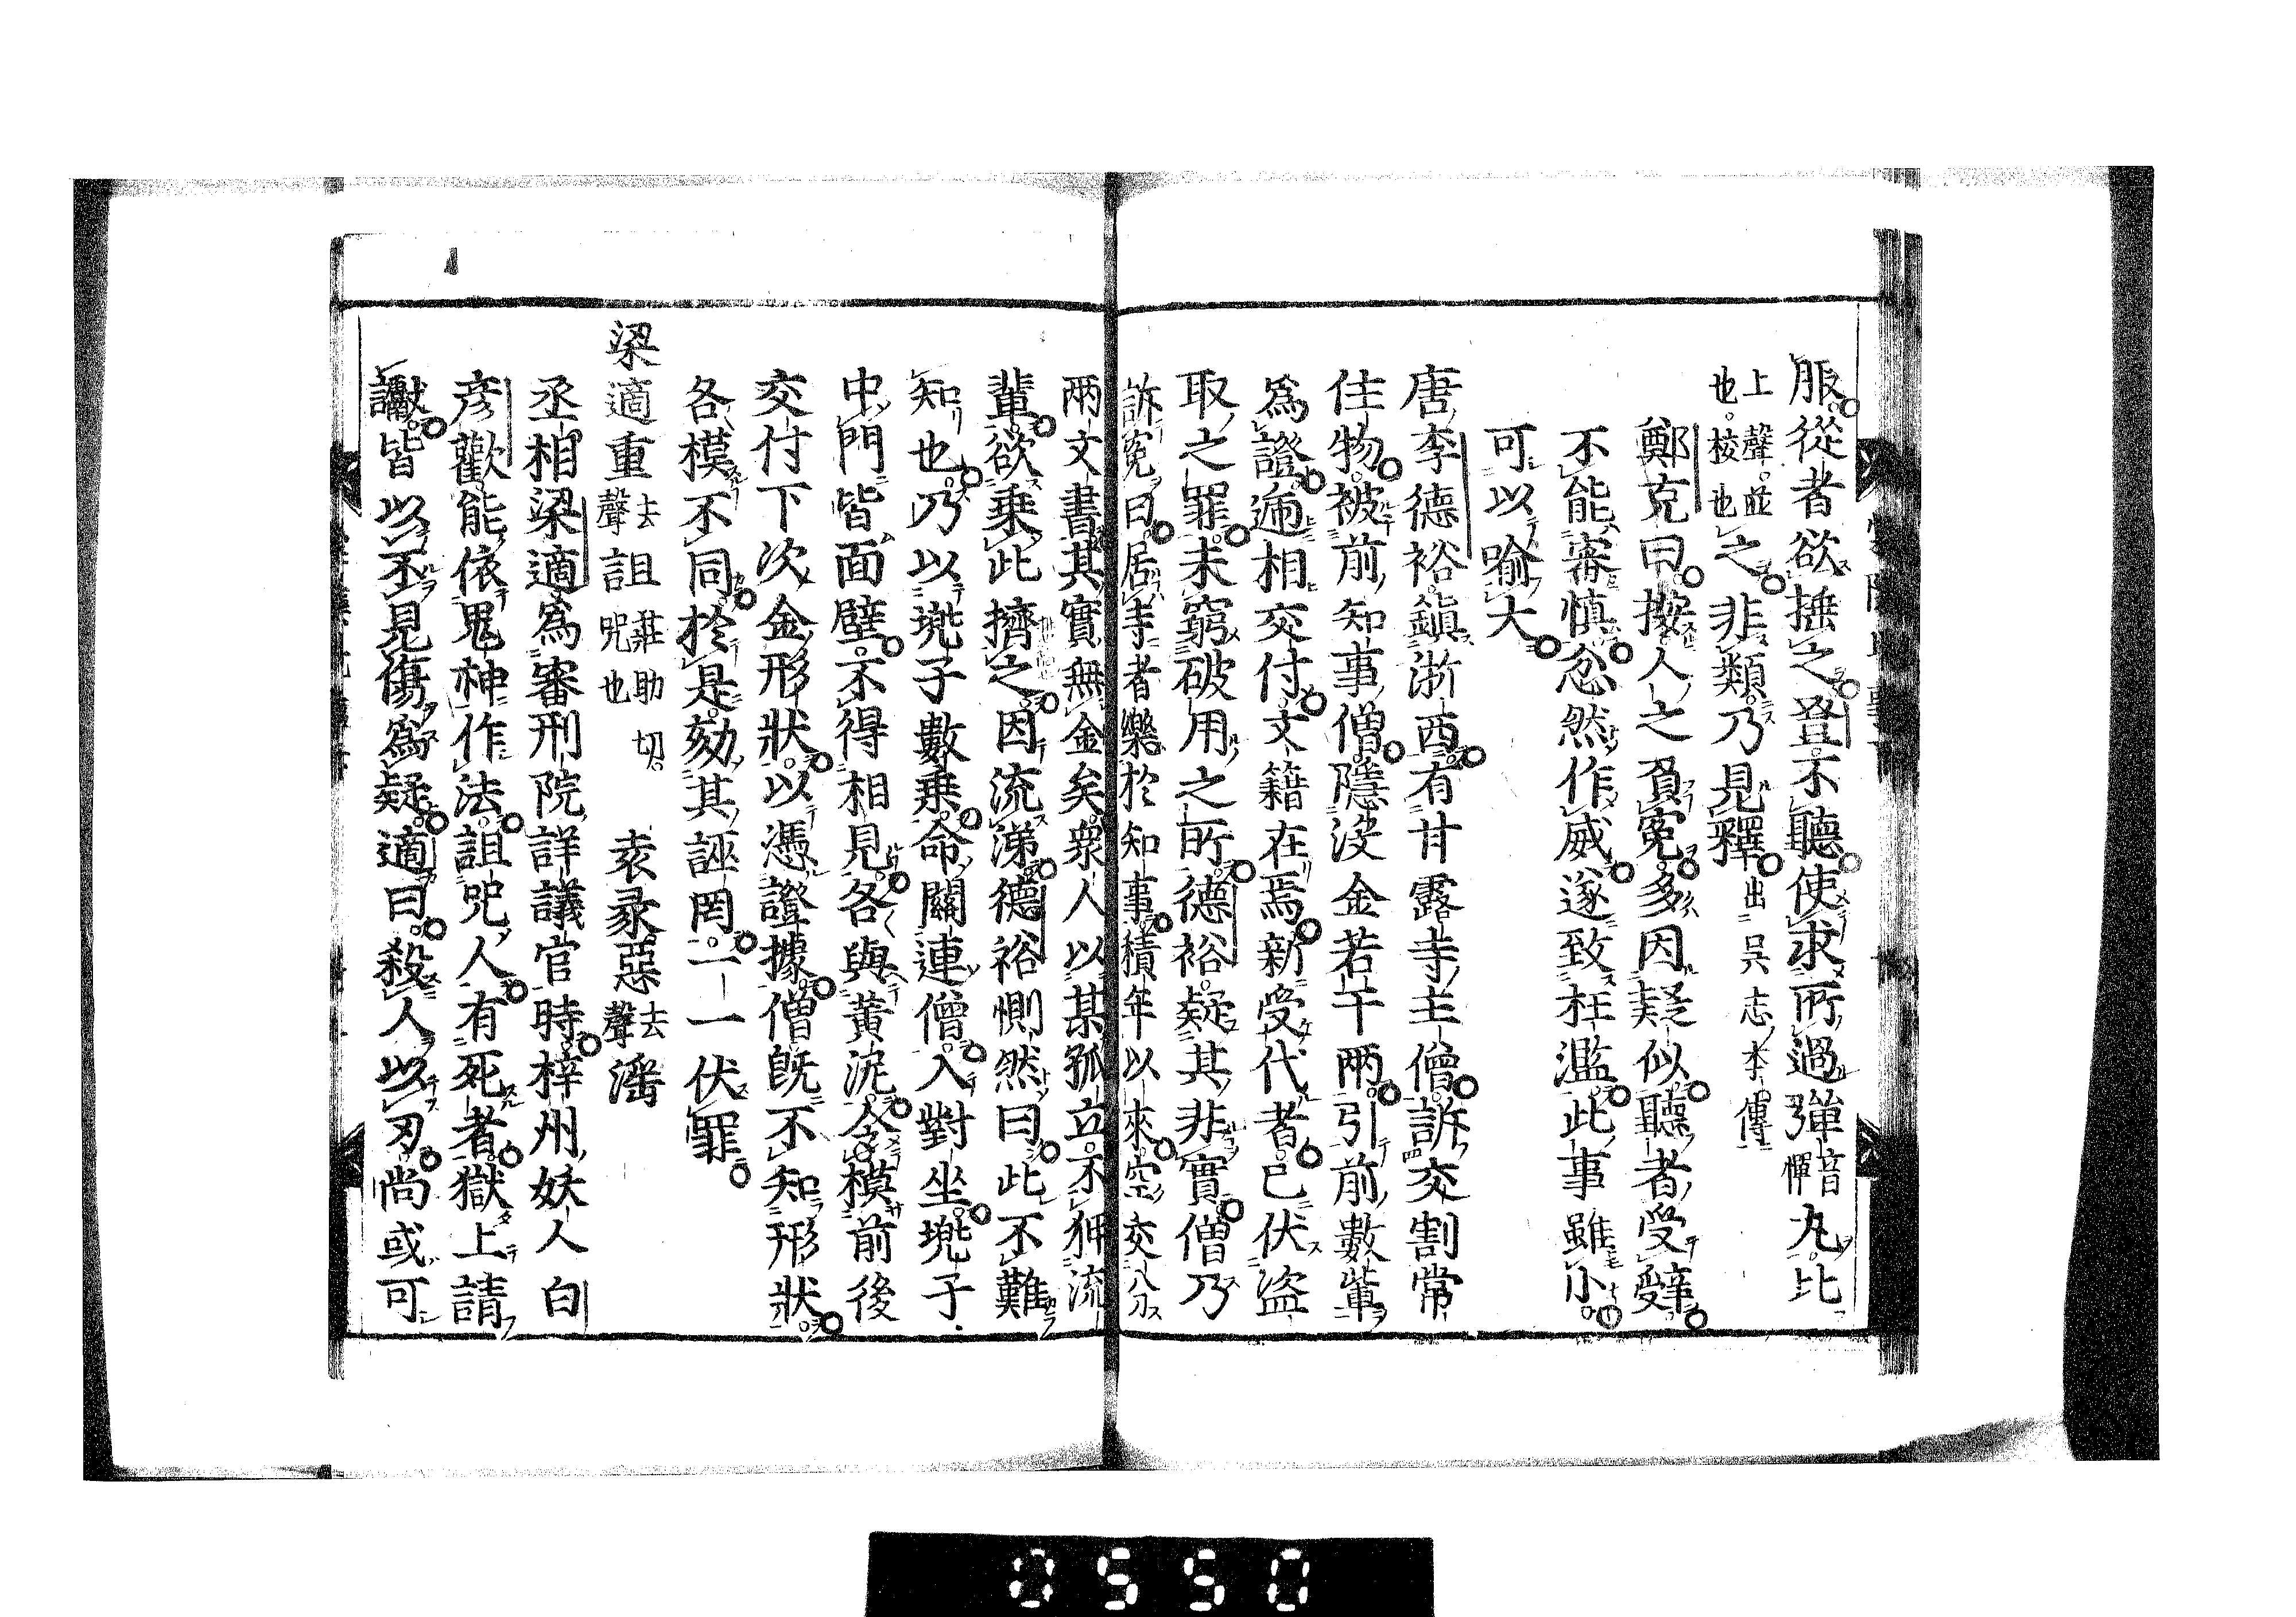 服從者欲捶之登不聽使求所過彈音憚丸比
上聲並也校也之非類乃見釋出吳志本傳
鄭克曰按人之負冤多因疑似聽者受辭
不能審慎忿然作威遂致枉濫此事雖小
可以喻大
唐李德裕鎮浙西有甘露寺主僧訴交割常
住物被前知事僧隱沒金若干兩引前數輩
爲證遞相交付文籍在焉新受代者已伏盜
取之罪未窮破用之所德裕疑其非實僧乃
訴冤曰居寺者樂於知事積年以來空交分
兩文書其實無金矣衆人以某孤立不狎流
輩欲乗此擠之因流涕德裕惻然曰此不難
知也乃以兠子數乗命關連僧入對坐兠子
中門皆面壁不得相見各與黃泥令模前後
交付下次金形狀以憑證據僧既不知形狀
各模不同於是劾其誣罔一一伏罪
梁適重去聲詛莊助切咒也 袁彖惡去聲滛
丞相梁適爲審刑院詳議官時梓州妖人白
彥歡能依鬼神作法詛咒人有死者獄上請
讞皆以不見傷爲疑適曰殺人以刃尚或可
0550